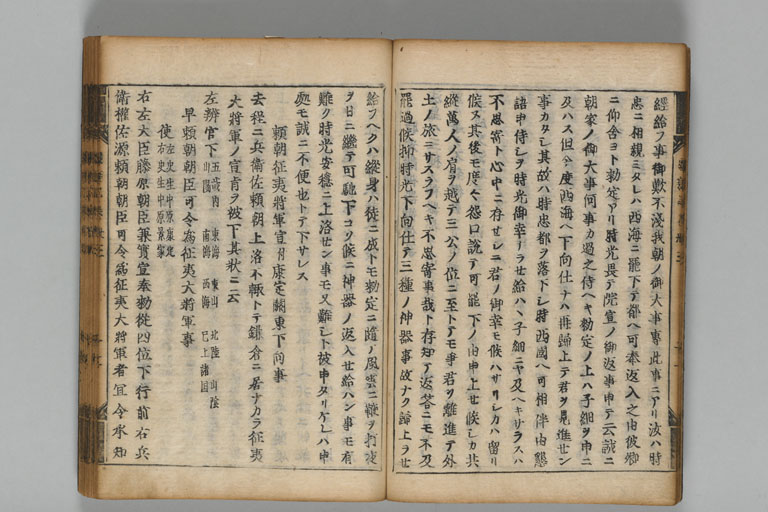 經給フ事御歎不淺我朝ノ御大事專此事ニアリ汝ハ時
忠ニ相親ミタレハ西海ニ罷下テ都ヘ可奉返入之由彼卿
ニ仰含ヨト勅定アリ時光畏テ院宣ノ御返事申テ云誠ニ
朝家ノ御大事何事カ過之侍ヘキ勅定ノ上ハ子細ヲ申ニ
及ハス但今度西海ヘ下向仕ナハ再歸上テ君ヲ見進セン
事カタシ其故ハ時忠都ヲ落下シ時西國ヘ可相伴由懇
語申侍シヲ時光御幸ニ
不思寄ト心中ニ存セシニ君ノ御幸モ候ハサリシカハ留リ
候ヌ其後モ度々怨口説テ可罷下ノ由申上セ候シカ共
縱萬人ノ肩ヲ越テ三公ノ位ニ至トテモ爭君ヲ離進テ外
土ノ旅ニサスラフヘキ不思寄事哉ト存知テ返答ニモ不及
罷過候抑時光下向仕テ三種ノ神器事故ナク歸上ラセ
給フヘクハ縱身ハ徒ニ成トモ勅定ニ隨
ヲ日ニ繼テ可馳下コソ候ニ神器ノ返入セ給ハン事モ有
難ク時光安穩ニ上洛セン事モ又難シト被申タリケレハ申
處モ誠ニ不便也トテ下サレス
賴朝征夷將軍宣付康定關東下向事
去程ニ兵衛佐賴朝上洛不輙トテ鎌倉ニ居ナカラ征夷
大將軍ノ宣旨ヲ被下其狀ニ云
左辨官下 五畿内 東海 東山 北陸 山陰 山陽 南海 西海 已上諸國
早賴朝朝臣可令爲征夷大將軍事
使 左史生中原康定 右史生中原景家
右左大臣藤原朝臣兼實宣奉勅從四位下行前右兵
衛權佐源賴朝朝臣可令爲征夷大將軍者宜令承知